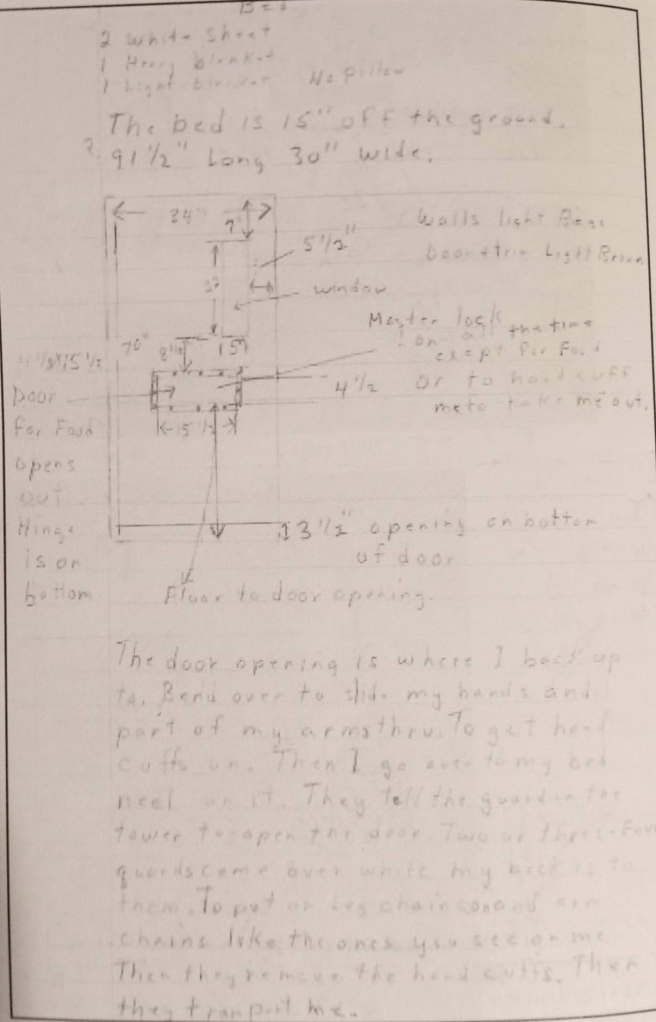 Bed
2 White Sheet
1 Heavy blanket
1 Light blanket No Pillow
The bed is 15" off the ground.
91 1/2" Long 30" wide.
34"
7"
Walls light Bege
5 1/2"
Door + trim Light Brown
window
Master lock
on all the time
70"
15"
except for Food
or to hand cuff
4 1/2
me to take me out.
Door
for Food
15 1/2
opens
out
Hinge
3 1/2" opening on bottom
is on
of door
bottom
Floor to door opening.
The door opening is where I back up
to. Bend over to slide my hands and
part of my arms thru. To get hand
cuffs on. Then I go over to my bed
neel on it. They tell the guard in the
tower to open the door. Two or three
guards come over while my back is to
them. To put on leg chains and arm
chains like the ones you see on me
Then they remove the hand cuffs. Then
they tranport me.